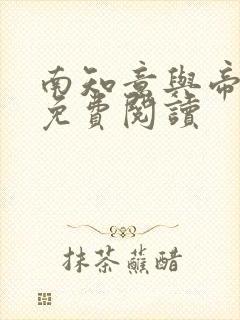 南知意與帝
免費閱讀
抹茶蘸醋